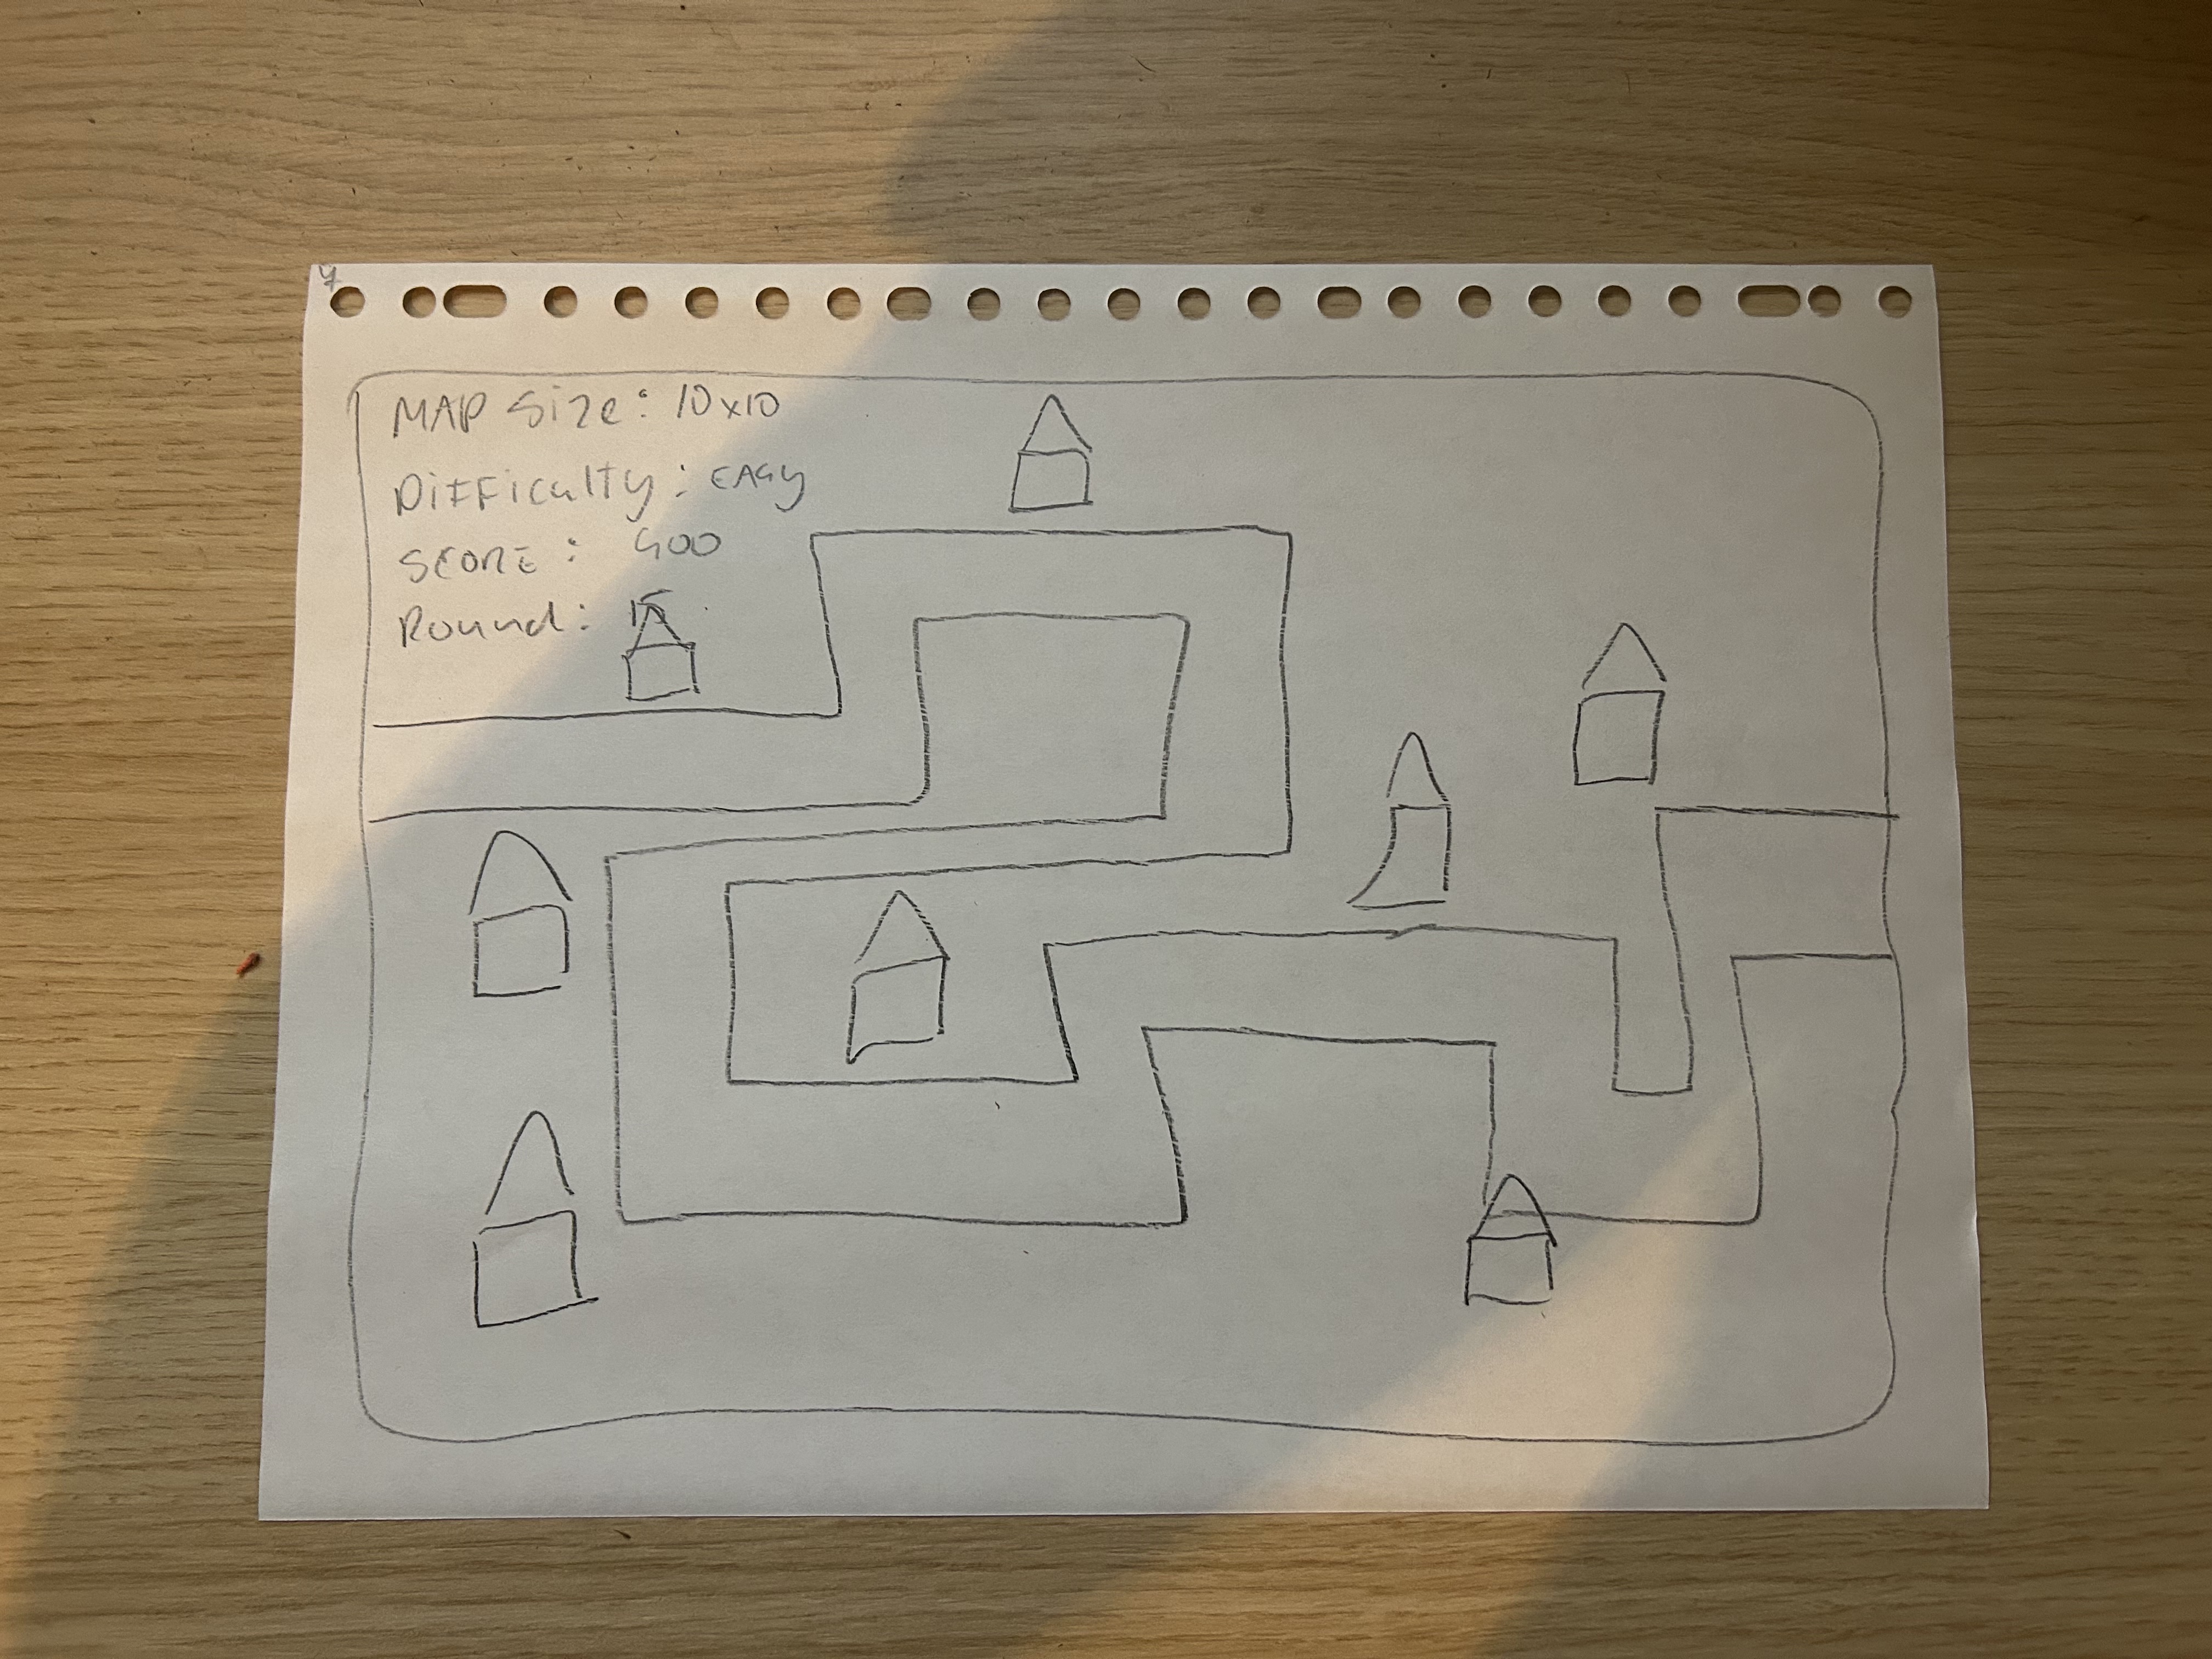 MAP Size: 10x10
Difficulty: EASy
SCORE: 900
Round: 15